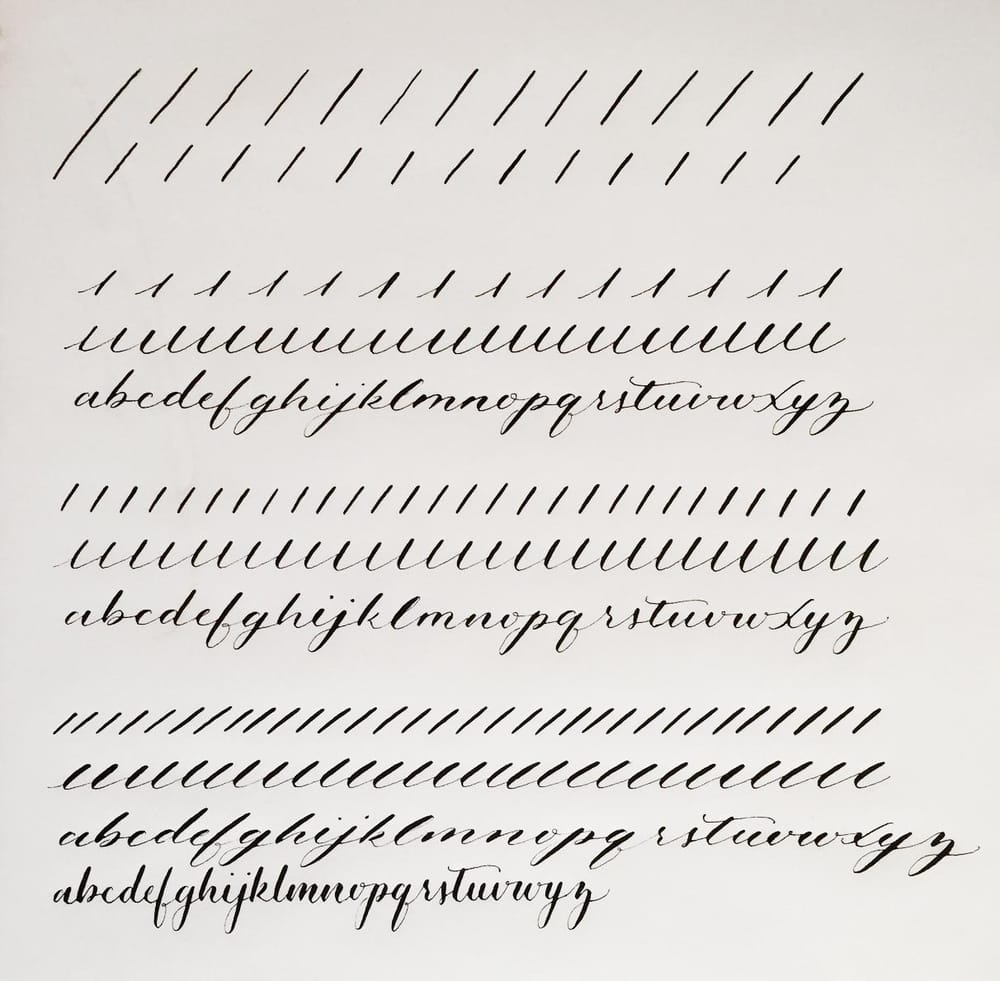 abcdefghijklmnopqrstuvwxyz
abcdefghijklmnopqrstuvwxyz
abcdefghijklmnopqrstuvwxyz
abcdefghijklmnopqrstuvwyz